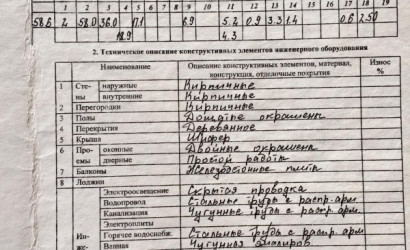 1 2 3 4 5 6 7 8 9 10 11 12 13 14 15 16 17 18 19
58.6 2 58.0 36.0 17.1 6.9 5.2 0.9 3.3 1.4 0.6 2.50
18.9 4.3
2. Техническое описание конструктивных элементов инженерного оборудования
Наименование Описание конструктивных элементов, материал, конструкция, отделочные покрытия Износ %
1 Сте- наружные Кирпичные
2 ны внутренние Кирпичные
2 Перегородки Кирпичные
3 Полы Дощатые окрашены
4 Перекрытия Деревянное
5 Крыша Шифер
6 Про- оконные Двойные окрашены
емы дверные Простой работы
7 Балконы Железобетонные плиты
8 Лоджии
Электроосвещение Скрытая проводка
Водопровод Стальные трубы с распр. арм
Канализация Чугунные трубы с распр. арм.
Электроплиты
Ин- Горячее водоснабж. Стальные трубы с распр. арм
же- Ванная Чугунная эмалиров.